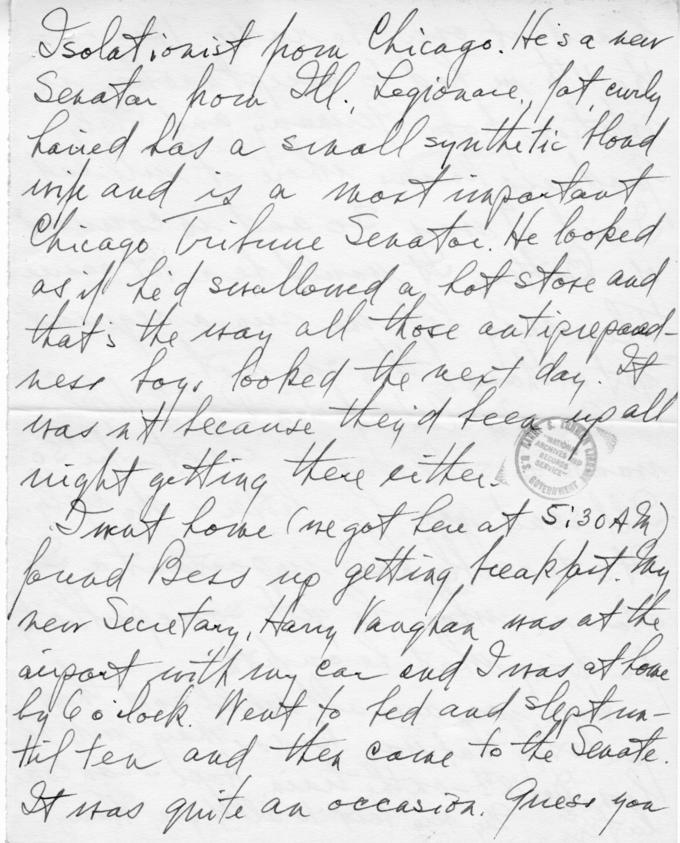 Isolationist from Chicago. He's a new
Senator from Ill., Legionare, fat, curly
haired has a small synthetic blond
wife and is a most important
Chicago Tribune Senator. He looked
as if he'd swallowed a hot stove and
that's the way all those antiprepared-
ness boys looked the next day. It
was n't because they'd been up all
night getting there either.
I went home (we got here at 5:30 AM)
found Bess up getting breakfast. My
new Secretary, Harry Vaughan was at the
airport with my car and I was at home
by 6 o'clock. Went to bed and slept un-
til ten and then came to the Senate.
It was quite an occasion. Guess you
HARRY S. TRUMAN LIBRARY
"NATIONAL
ARCHIVES
RECORDS
SERVICE"
U.S. GOVERNMENT